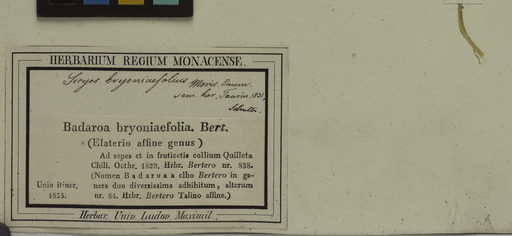 HERBARIUM REGIUM MONACENSE.
Sicyos bryoniaefolius Moris. Enum.
sem. hor. Taurin. 1831,
Badaroa bryoniaefolia. Bert.
(Elaterio affine genus)
Ad sepes et in fruticetis collium Quillota
Chili. Octbr. 1829. Hrbr. Bertero nr. 858.
(Nomen Badaroa a clbo Bertero in ge-
Unio itiner. nera duo diversissima adhibitum, alterum
1835. nr. 84. Hrbr. Bertero Talino affine.)
Herbar. Univ. Ludov. Maximil.